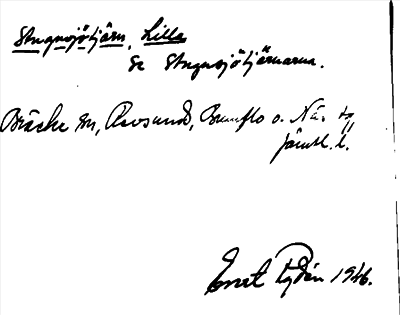 Stugusjötjärn, Lilla
Se Stugusjötjärnarna.
Bräcke sn, Revsunds, Brunflo o. Näs tg
Jämtl. l.
Ernst Rydén 1946.